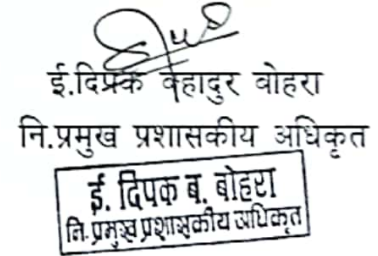 ई.दिपक वहादुर वोहरा
नि.प्रमुख प्रशासकीय अधिकृत
ई. दिपक ब. बोहरा
नि.प्रमुख प्रशासकीय अधिकृत